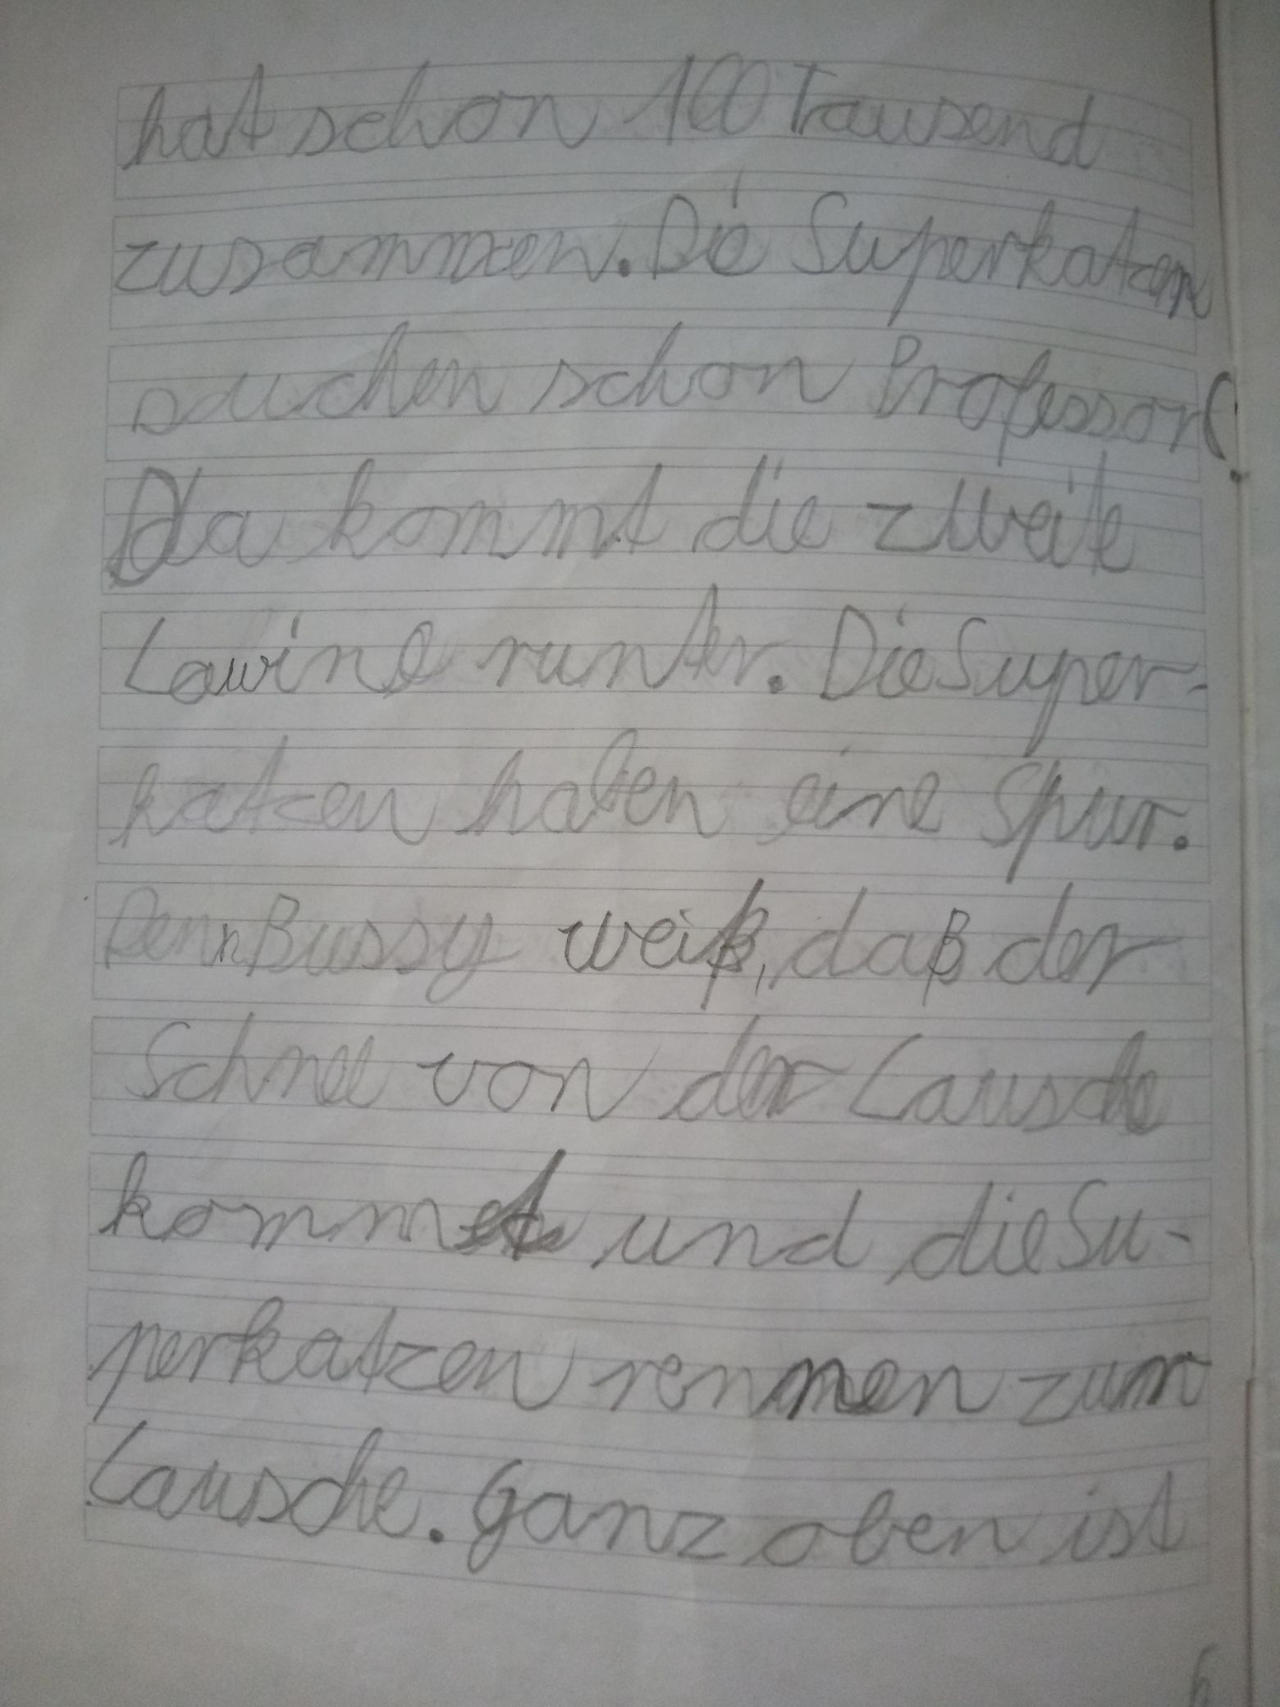 hat schon 100 Tausend
zusammen. Die Superkatzen
suchen schon Professor C.
Da kommt die zweite
Lawine runter. Die Super-
katzen haben eine Spur.
Denn Bussy weiß, daß der
Schnee von der Lausche
kommt und die Su-
perkatzen rennen zur
Lausche. Ganz oben ist
6